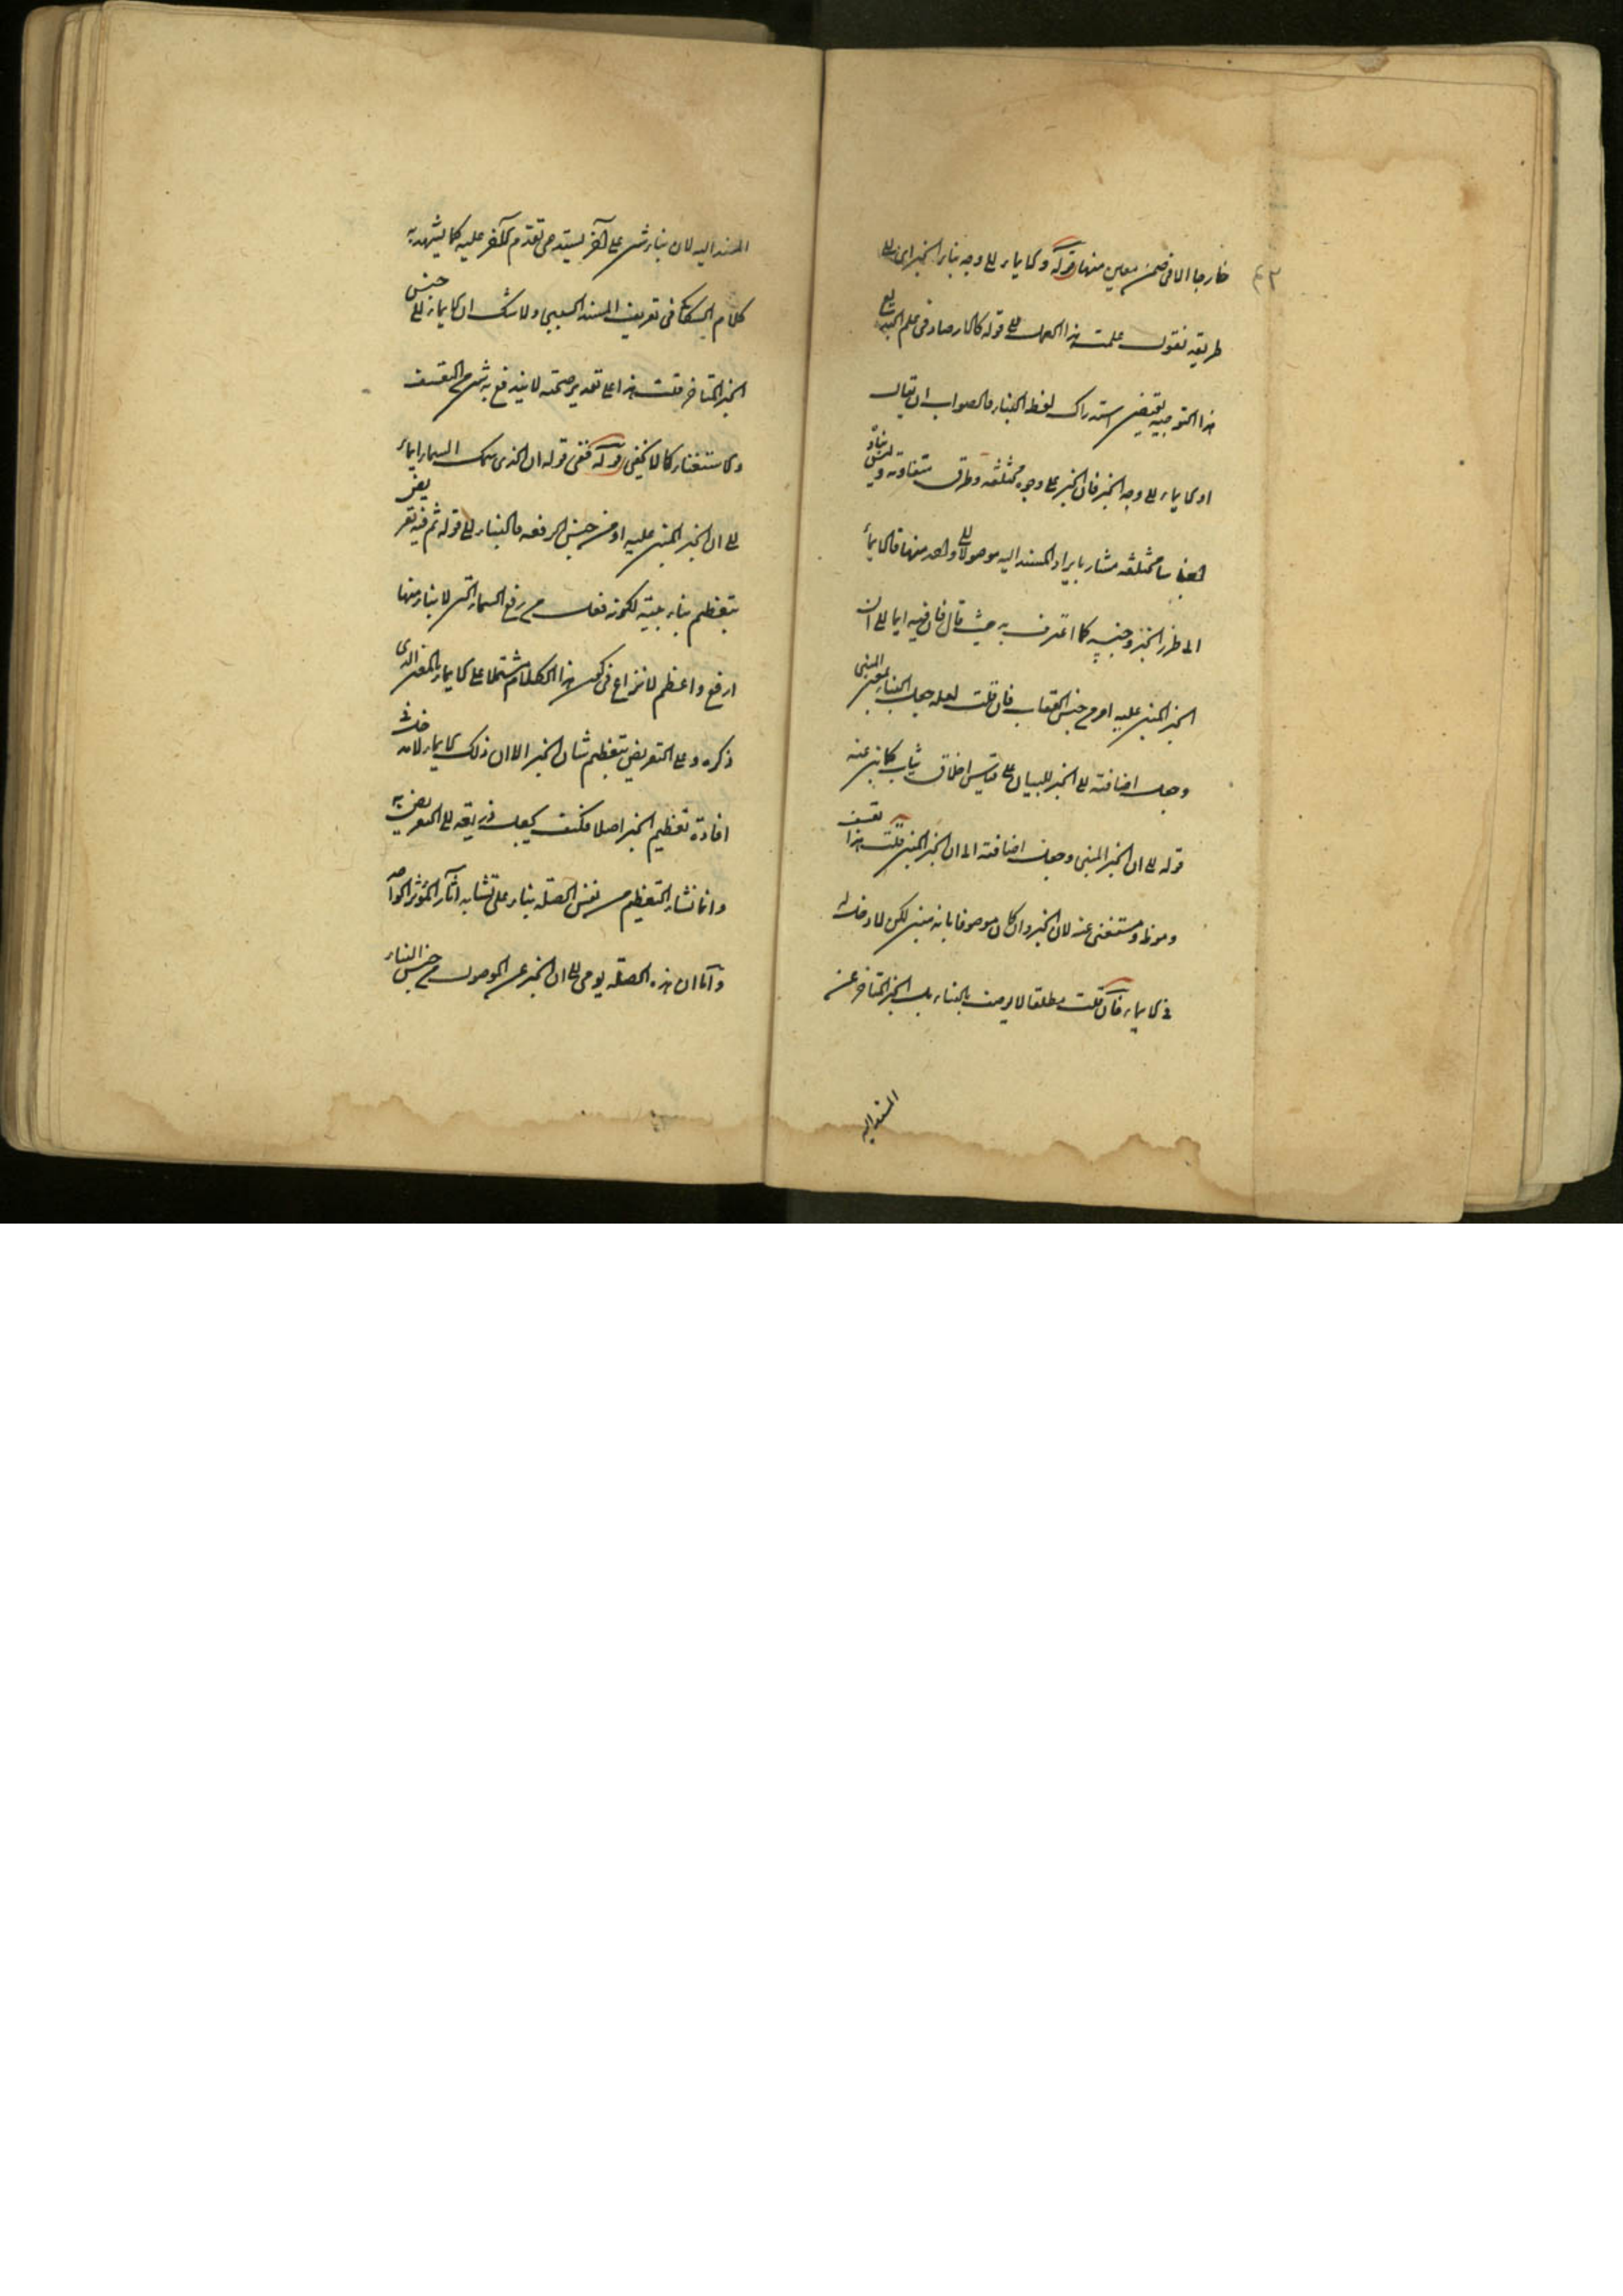 خارجا الا فى ضمن معين منها قوله والايماء الى وجه بناء الخبر اى الى
طريقه تقول عملت هذا العمل الى قوله كالارصاد فى علم البديع
هذا التوجيه يقتضى استدراك لفظ البناء فالصواب ان يقال
او الايماء الى وجه الخبر فان الخبر على وجوه مختلفة وطرق متفاوتة
مختلفة مشار بايراد المسند اليه موصولا الى واحد منها فالايماء
الى طرز الخبر وجنسه كما اعترف به حيث قال فان فيه ايماء الى ان
الخبر المبنى عليه امر من جنس العقاب فان قلت لعله جعل البناء بمعنى المبنى
وجعل اضافته الى الخبر للبيان على قياس اخلاق ثياب كانه عنه
قوله الى ان الخبر المبنى وجعل اضافته الى ان الخبر المبنى قلت هذا تعسف
ومستغنى عنه لان الخبر وان كان موصوفا بانه مبنى لكن لا دخل له
فى الايماء فان قلت مطلقا لا يوصف بالبناء بل الخبر المتاخر عن
المسند اليه
المسند اليه لان بناء شىء على آخر يستدعى تقدم الآخر عليه كما يشهد به
كلام السكاكى فى تعريف المسند السببى ولا شك ان الايماء الى جنس
الخبر المتاخر قلت هذا على تقدير صحته لا يندفع به شىء من التعسف
والاستغناء كما لا يخفى قوله ففى قوله ان الذى سمك السماء ايماء
الى ان الخبر المبنى عليه امر من جنس الرفعة والبناء الى قوله ثم فيه تعريض
بتعظيم بناء بيته لكونه فعل من رفع السماء التى لا بناء منها
ارفع واعظم لا نزاع فى كون هذا الكلام مشتملا على الايماء بالمعنى الذى
ذكره وعلى التعريض بتعظيم شان الخبر الا ان ذلك الايماء لا مدخل له فى
افادة تعظيم الخبر اصلا فكيف يجعل ذريعة الى التعريض به
وانما نشاء التعظيم من نفس الصلة بناء على تشابه آثار المؤثر الواحد
واما ان هذه الصلة يومى الى ان الخبر عن الموصول من جنس البناء